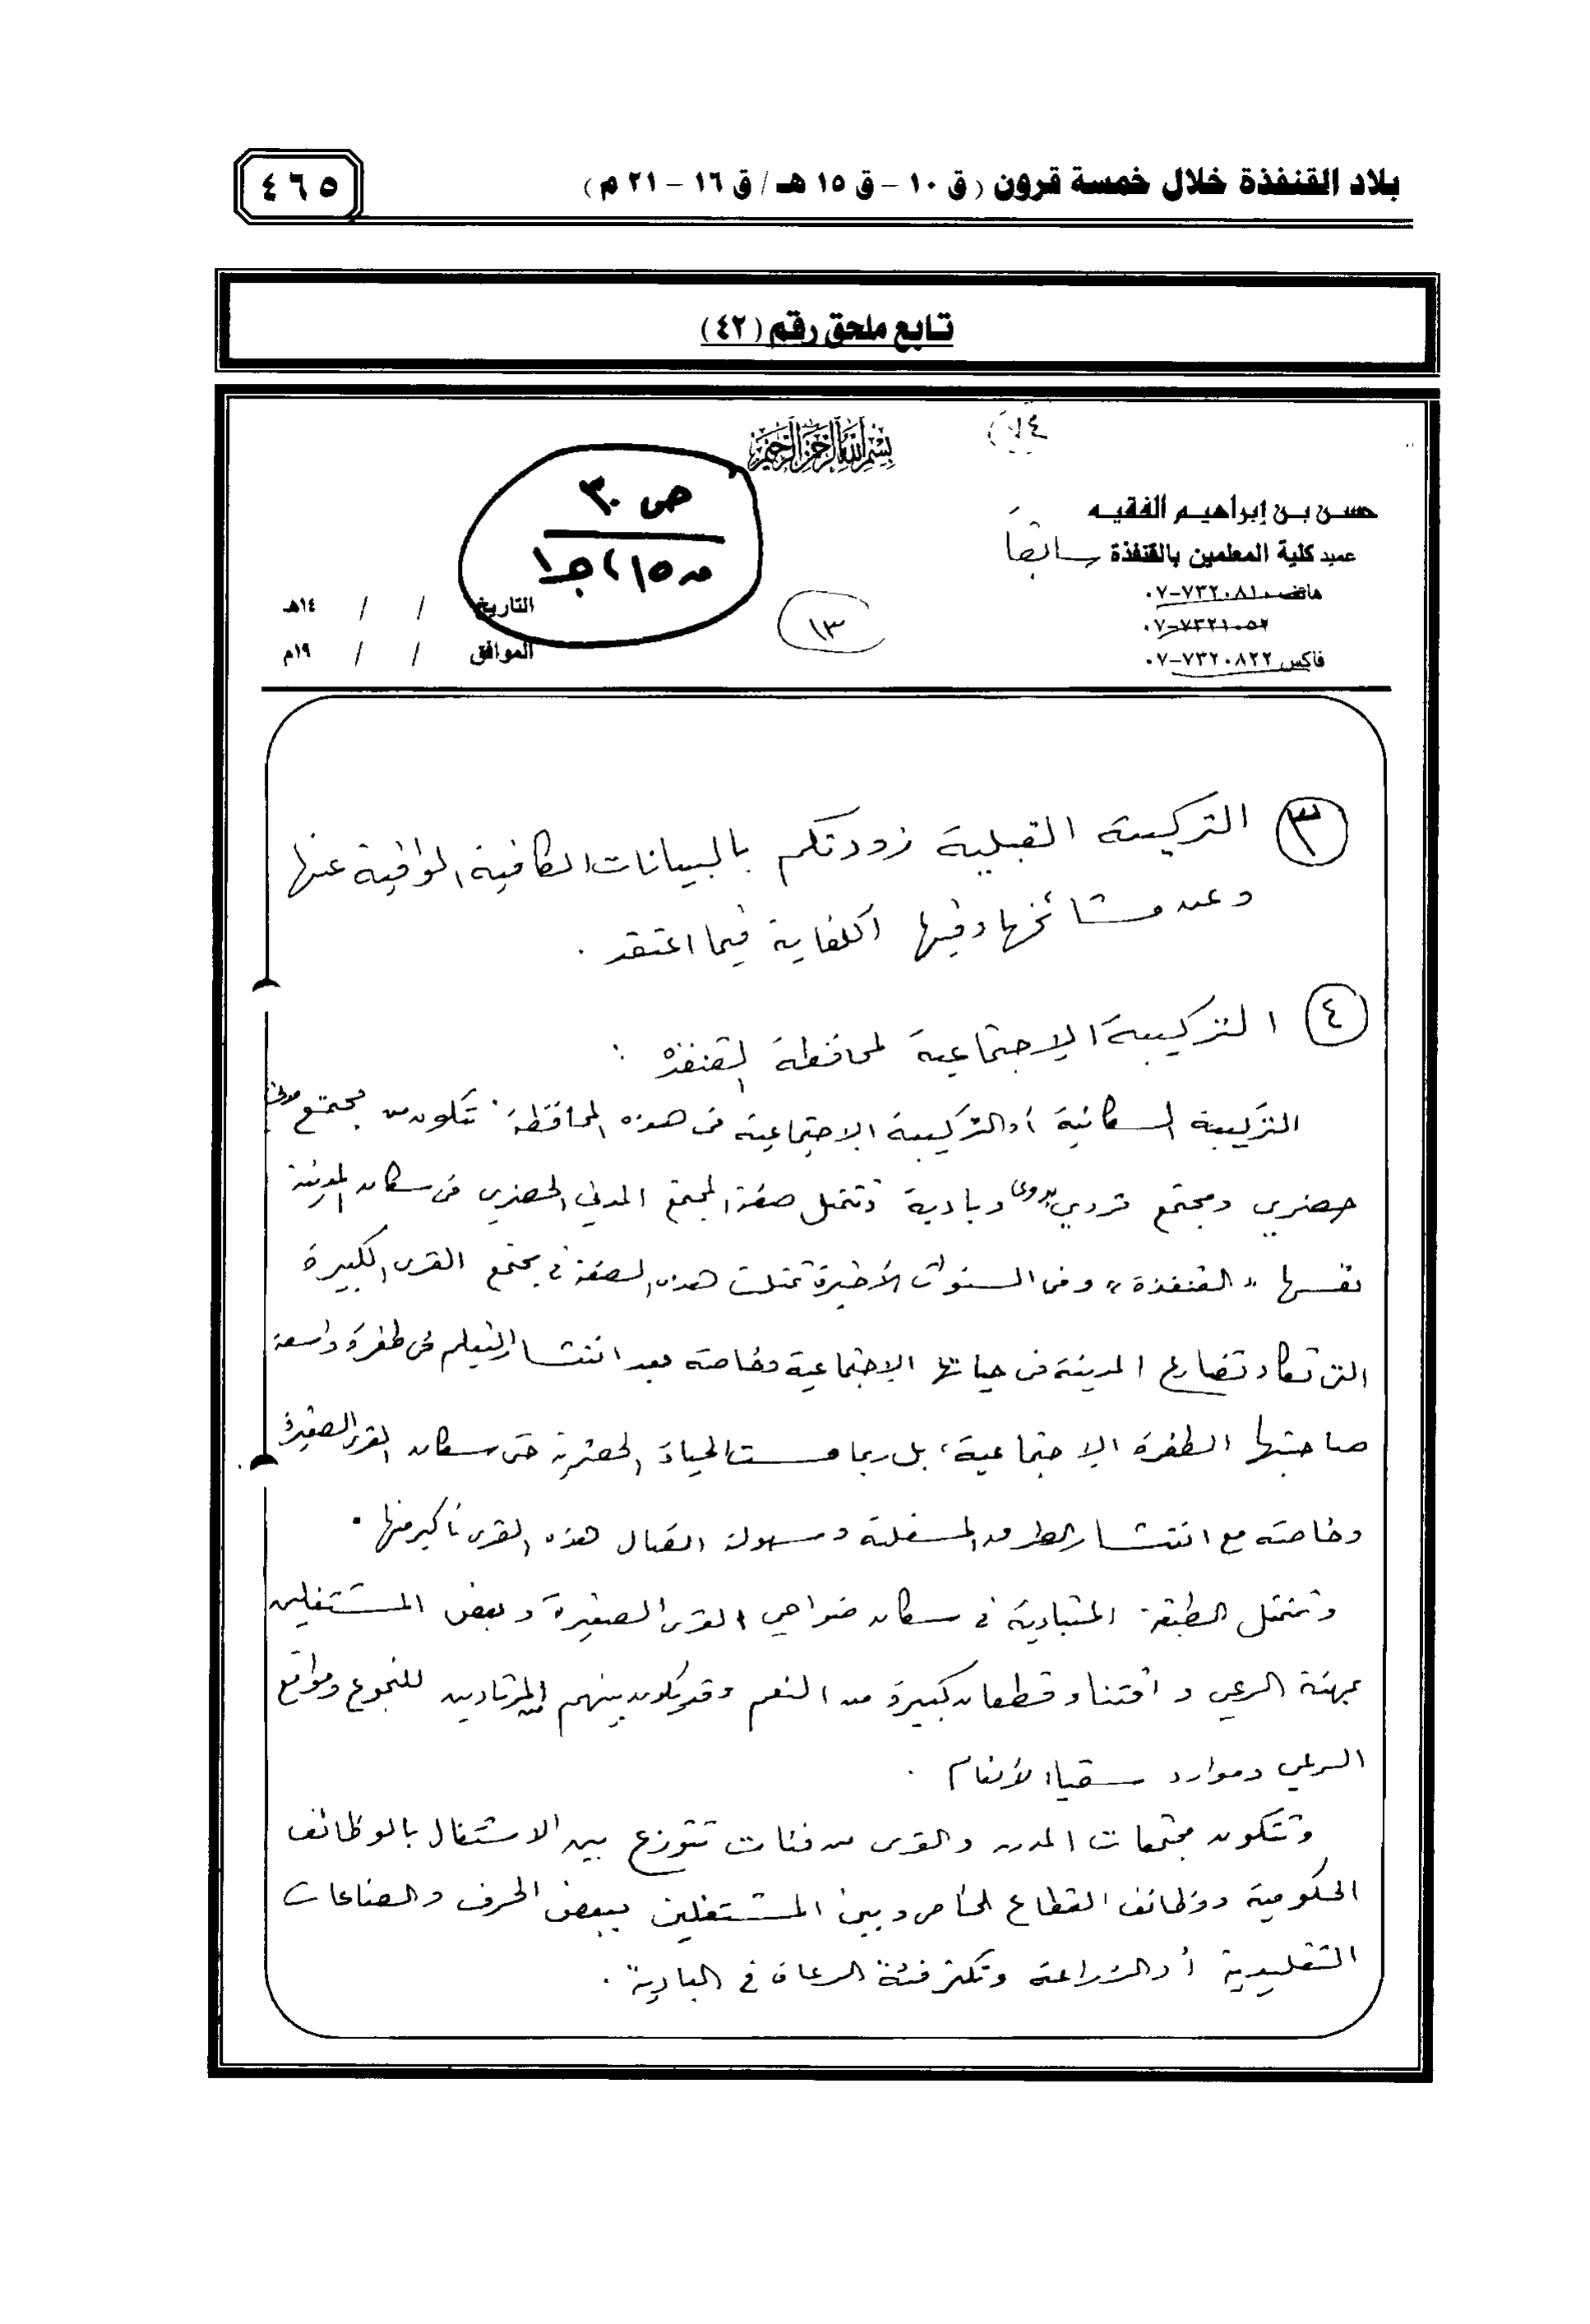 بلاد القنفذة خلال خمسة قرون (ق ١٠ - ق ١٥ هـ / ق ١٦ - ٢١ م)
٤٦٥
تابع ملحق رقم (٤٢)
بسم الله الرحمن الرحيم
ص ٣٠
حسن بن إبراهيم الفقيه
عميد كلية المعلمين بالقنفذة سابقاً
هاتف ٠٧-٧٣٢٠٨١٠
٠٧-٧٣٢١٠٥٢
فاكس ٠٧-٧٣٢٠٨٢٢
١٣
التاريخ / / ١٤هـ
الموافق / / ١٩م
٣ التركيبة القبلية زودتكم بالبيانات الكافية الوافية عنها
وعن مشائخها وفيها الكفاية فيما اعتقد .
٤ التركيبة الاجتماعية لمحافظة القنفذة :
التركيبة السكانية أو التركيبة الاجتماعية في هذه المحافظة تتكون من مجتمع مدني
حضري ومجتمع قروي بدوي وبادية وتتمثل صفة المجتمع المدني الحضري في سكان المدينة
نفسها "القنفذة" وفي السنوات الأخيرة تمثلت هذه الصفة في مجتمع القرى الكبيرة
التي تكاد تضارع المدينة في حياتها الاجتماعية وخاصة بعد انتشار التعليم في طفرة واسعة
صاحبتها الطفرة الاجتماعية، بل ربما مست الحياة الحضرية حتى سكان القرى الصغيرة
وخاصة مع انتشار الطرق المسفلتة وسهولة اتصال هذه القرى بأكبر منها .
وتتمثل الطبقة المتبادية في سكان ضواحي القرى الصغيرة وبعض المشتغلين
بمهنة الرعي واقتناء قطعان كبيرة من النعم وقد يكون بينهم المرتادين للنجوع ومواقع
الرعي وموارد سقيا الأنعام .
وتتكون مجتمعات المدن والقرى من فئات تتوزع بين الاشتغال بالوظائف
الحكومية ووظائف القطاع الخاص وبين المشتغلين ببعض الحرف والصناعات
التقليدية أو الزراعة وتكثر فئة الرعاة في البادية .